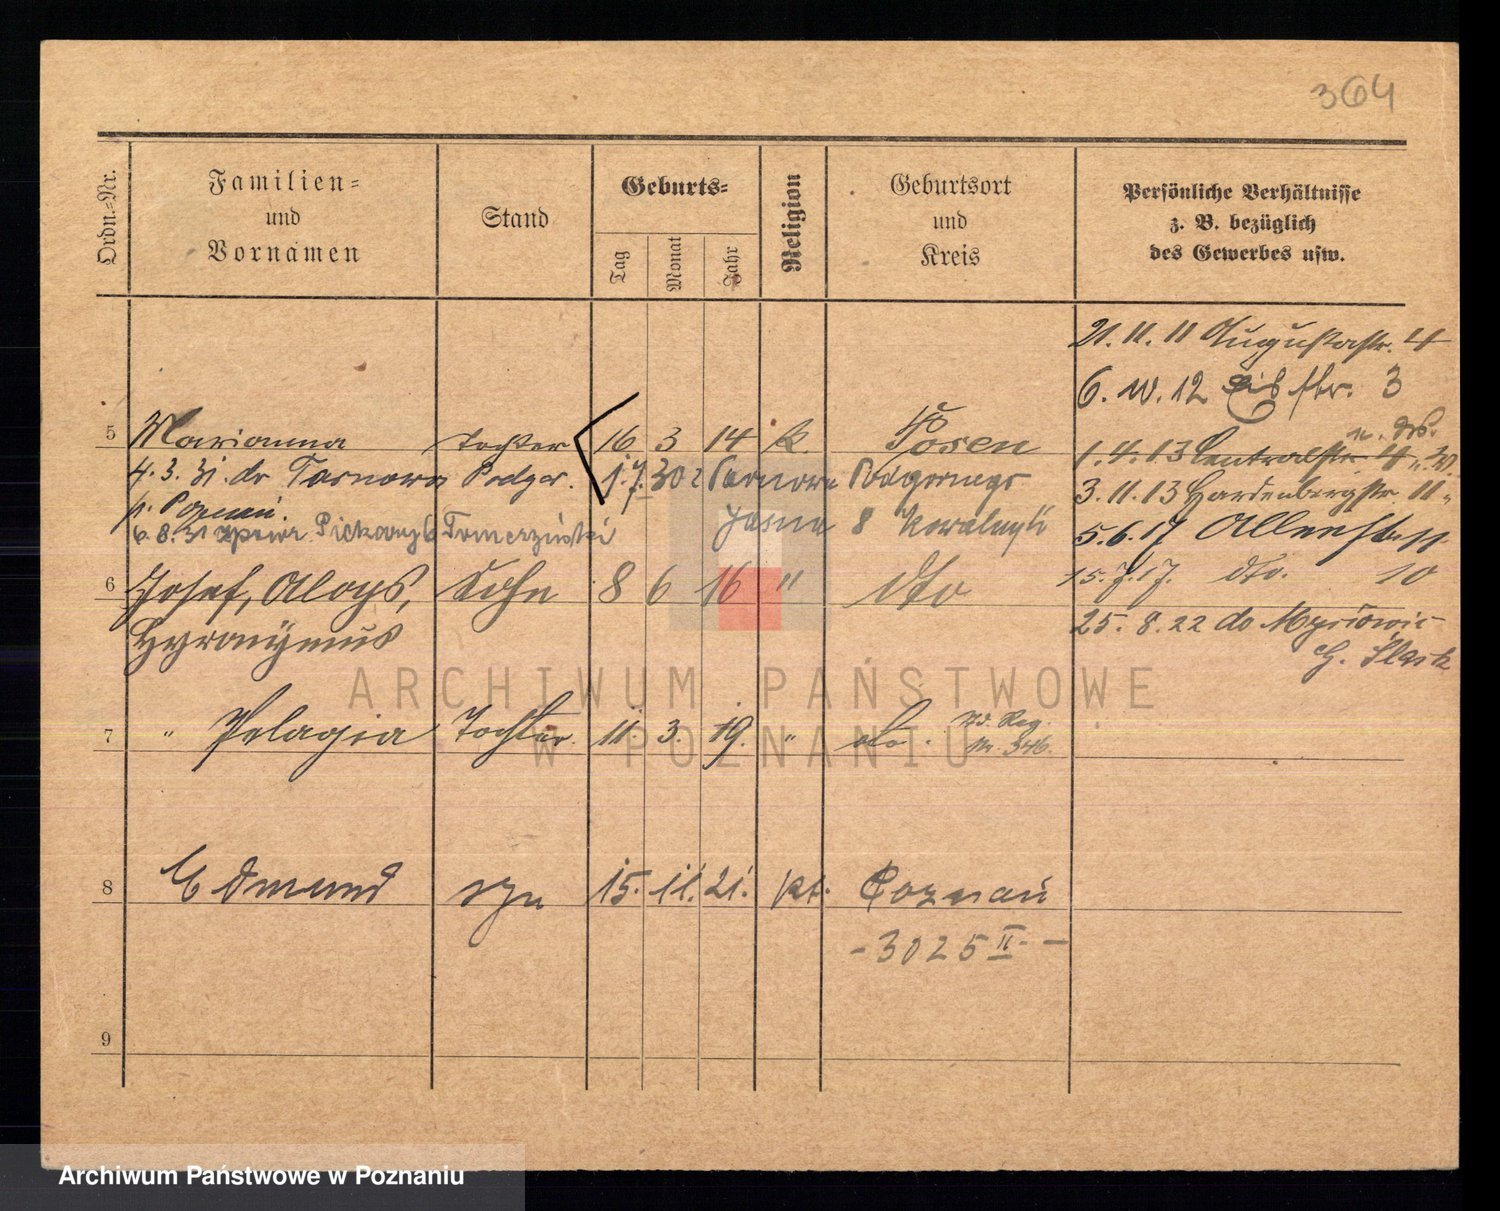 364
Ordn.-Nr.
Familien-
und
Vornamen
Stand
Geburts-
Tag
Monat
Jahr
Religion
Geburtsort
und
Kreis
Persönliche Verhältnisse
z. B. bezüglich
des Gewerbes usw.
21. 11. 11 Augustastr. 4
6. 12 str. 3
5 Marianna Tochter 16 3 14 k. Posen
1. 4. 13 Centralstr. 4
4. 3. 31. do Tarnowo Podgór. 1. 7. 30 z Tarnowa Podgórnego
3. 11. 13 Hardenbergstr. 11
p. Poznań.
6. 8. 31 Jasna 8 Kowalczyk
5. 6. 17 Allenst
6 Josef, Aloys, Sohn 8 6 16 " dto
15. 7. 17. dto. 10
Hyronymus
25. 8. 22 do Mysłowic
G. Śląsk
7 " Pelagia Tochter 11. 3. 19. " do. Reg.
Nr. 346.
8 Edmund syn 15. 11. 21. kt. Poznań
- 3025 II - -
9
ARCHIWUM PAŃSTWOWE
W POZNANIU
Archiwum Państwowe w Poznaniu